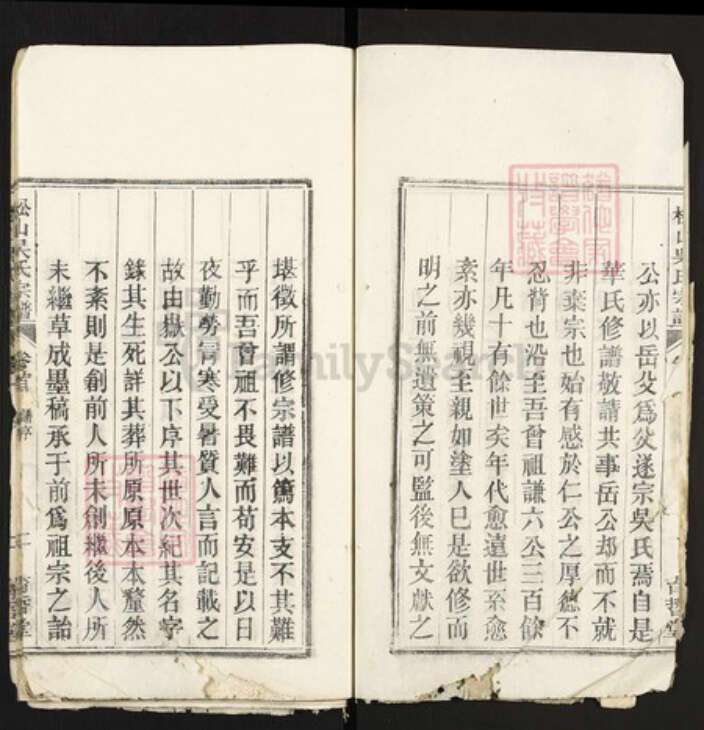 公亦以岳父為父遂宗吳氏焉自是
華氏修譜敬請共事岳公却而不就
非棄宗也始有感於仁公之厚德不
忍背也沿至吾曾祖謙六公三百餘
年凡十有餘世矣年代愈遠世系愈
紊亦幾視至親如塗人已是欲修而
明之前無遺策之可監後無文獻之
堪徵所謂修宗譜以篤本支不其難
乎而吾曾祖不畏難而苟安是以日
夜勤勞冐寒受暑質人言而記載之
故由嶽公以下序其世次紀其名字
錄其生死詳其葬所原原本本釐然
不紊則是創前人所未創繼後人所
未繼草成墨稿承于前為祖宗之詒
松山吳氏宗譜
卷首
譜序
FamilySearch